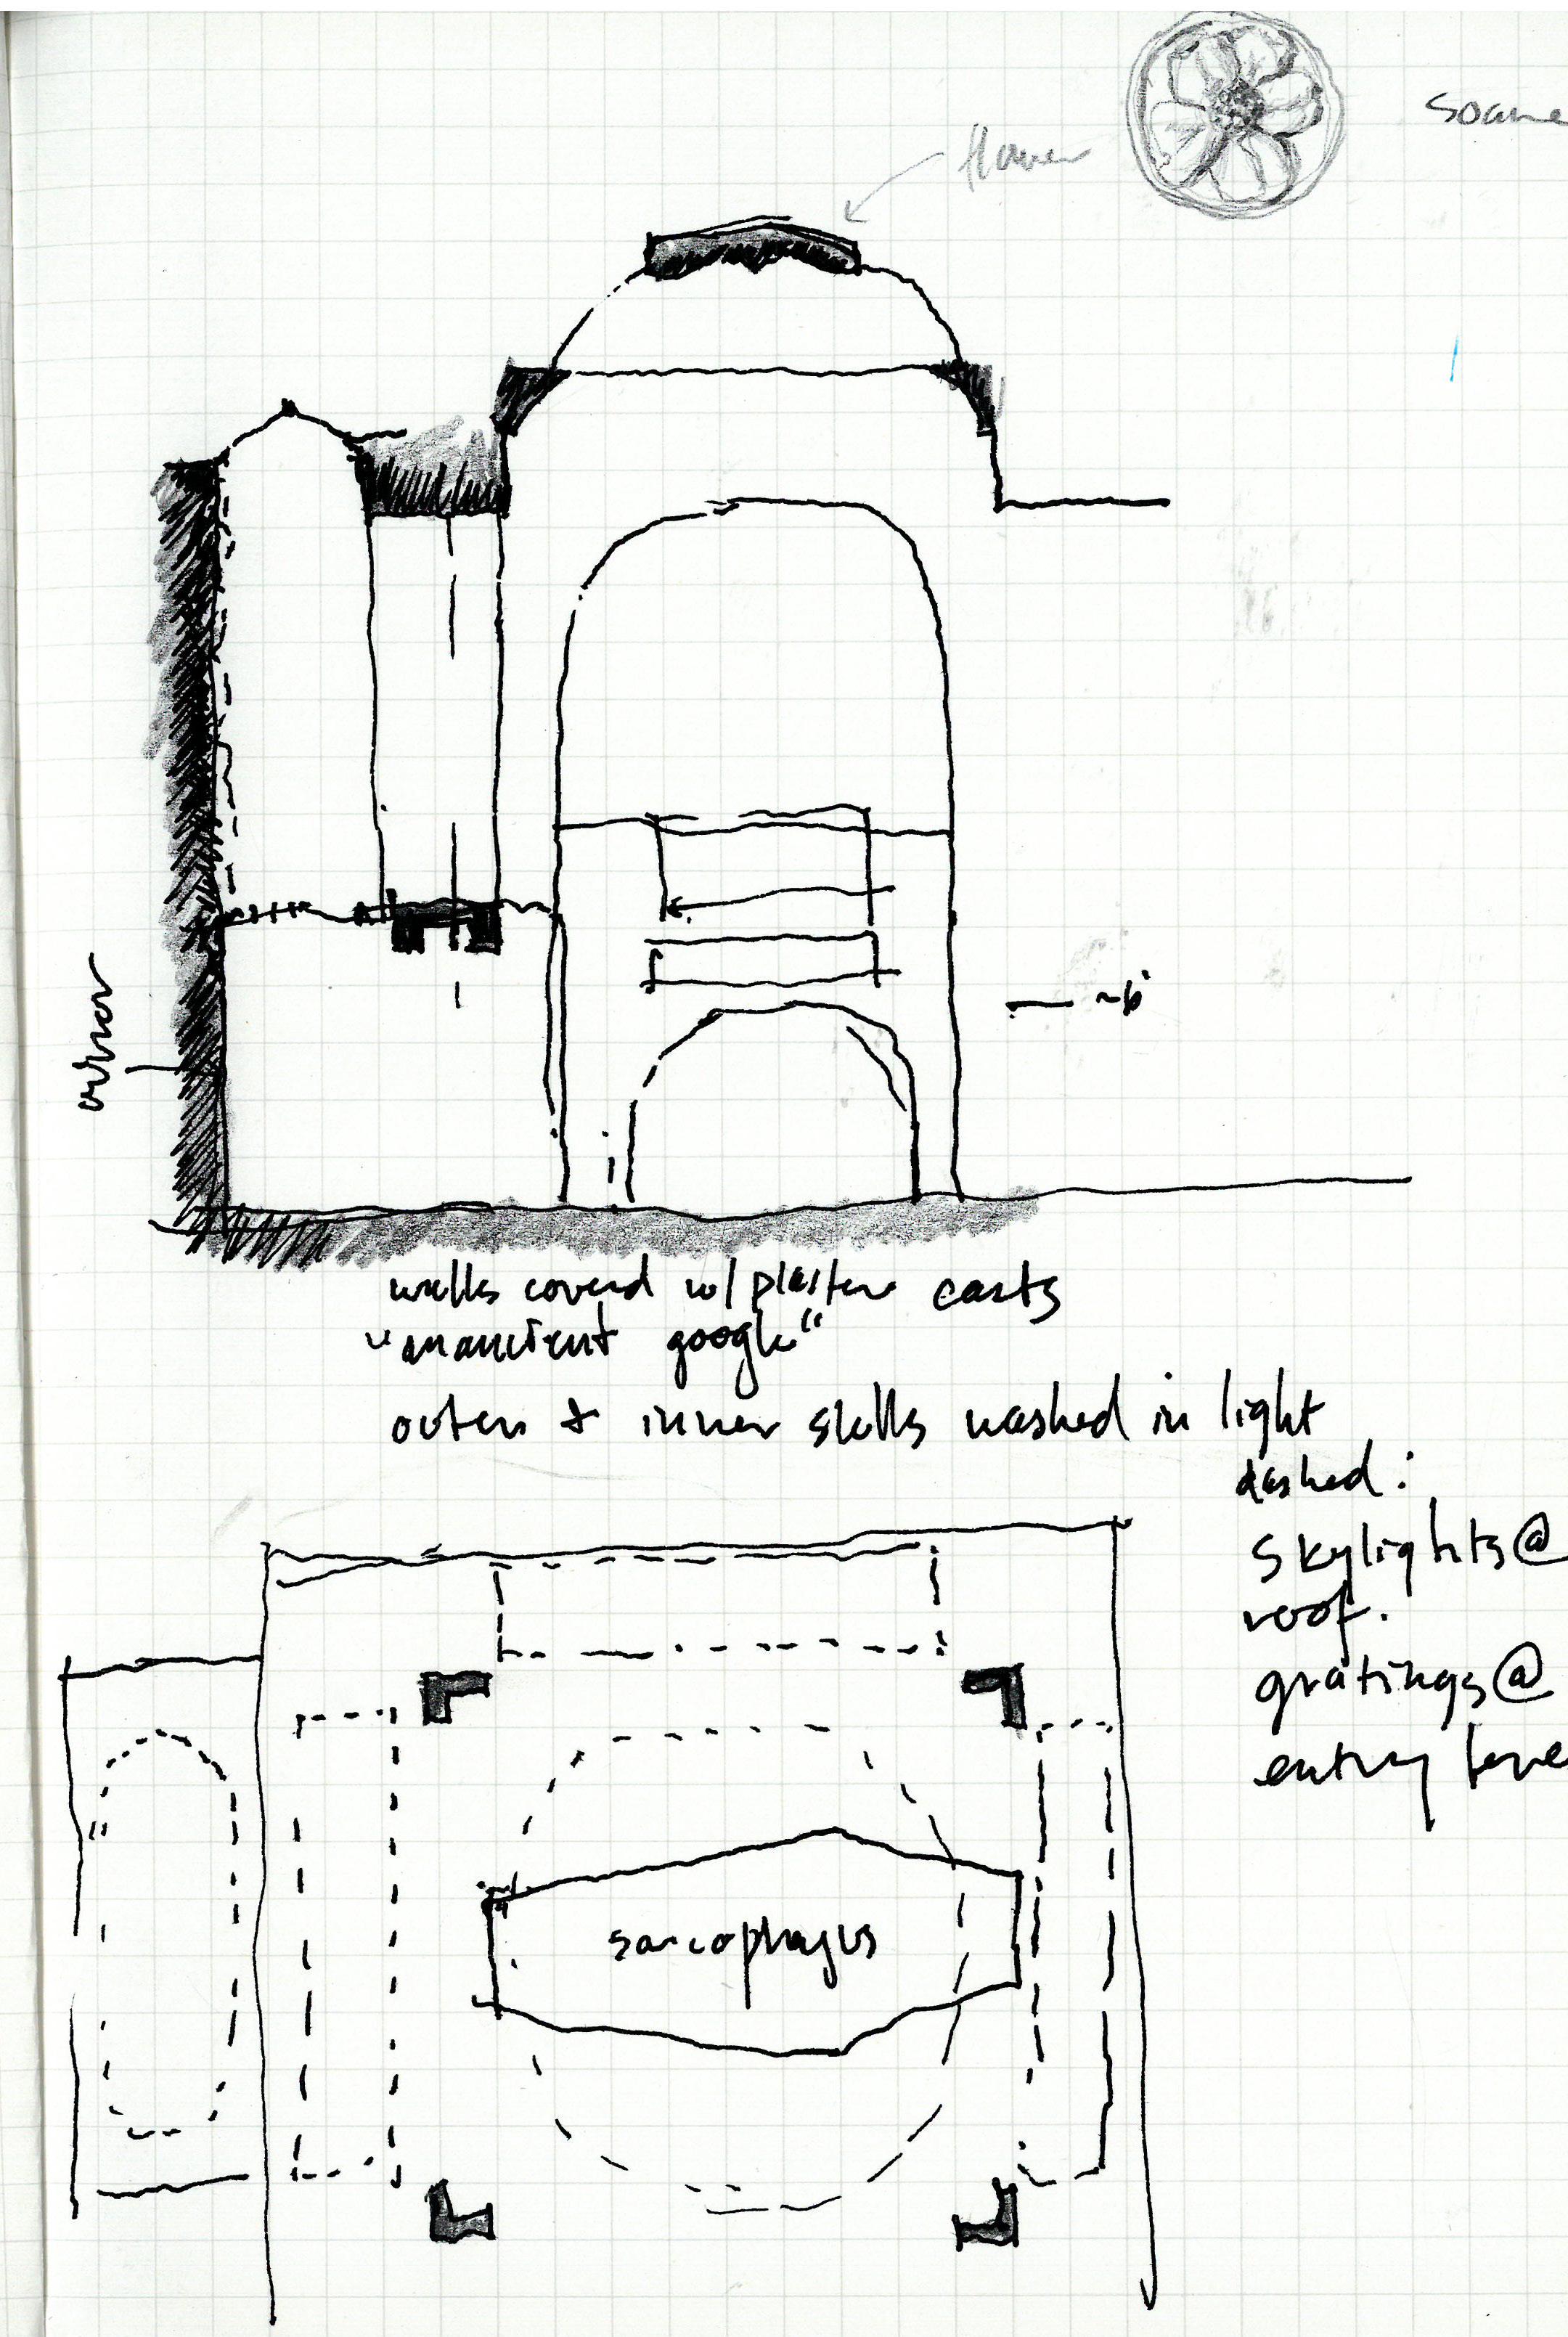 Soane
flower
mirror
~6'
walls covered w/ plaster casts
"an ancient google"
outer & inner shells washed in light
dashed:
skylights @
roof.
gratings @
entry leve
sarcophagus